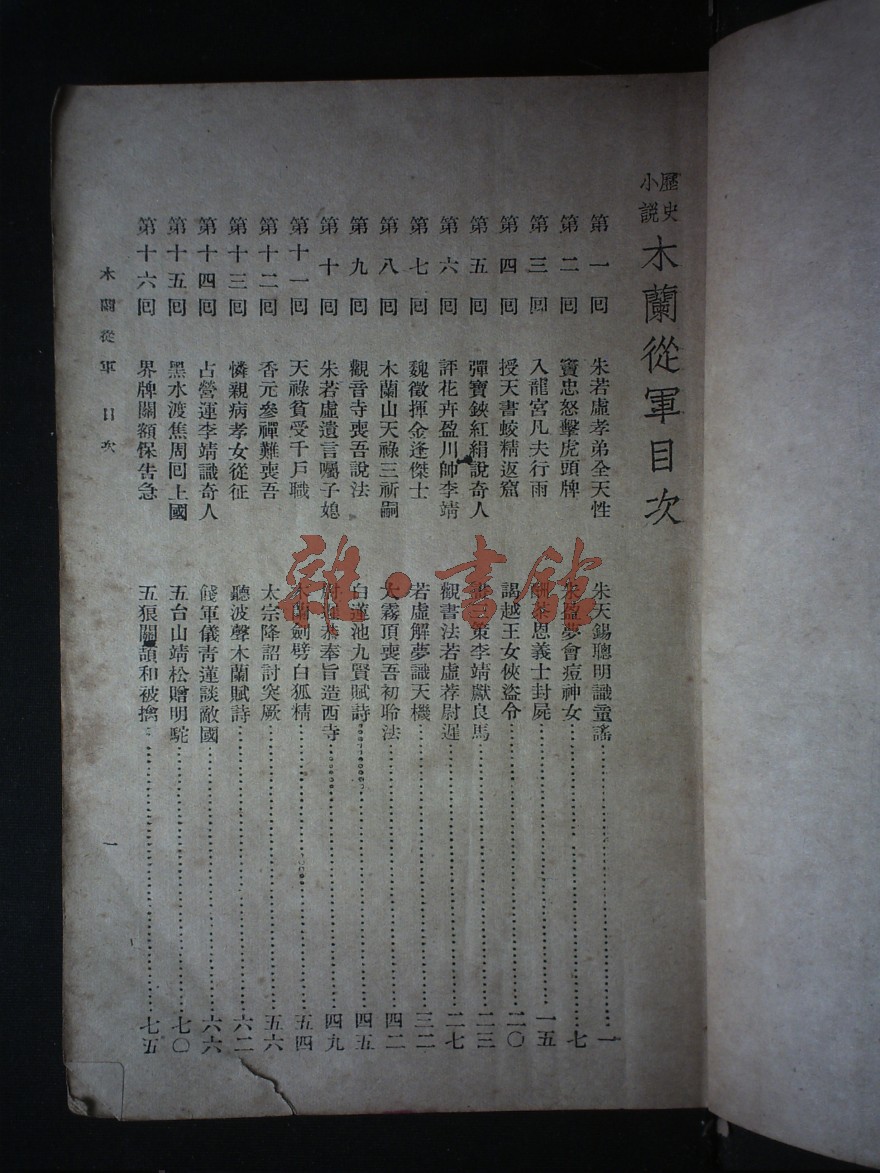 歷史小說 木蘭從軍目次
第一回 朱若虛孝弟全天性 朱天錫聰明識童謠 一
第二回 竇忠怒擊虎頭牌 朱盈夢會痘神女 七
第三回 入龍宮凡夫行雨 酬茶恩義士封屍 一五
第四回 授天書蛟精返窟 謁越王女俠盜令 二〇
第五回 彈寶鋏紅絹說奇人 策李靖獻良馬 二三
第六回 評花卉盈川帥李靖 觀書法若虛荐尉遲 二七
第七回 魏徵揮金逢傑士 若虛解夢識天機 三二
第八回 木蘭山天祿三祈嗣 大霧頂喪吾初聆法 四二
第九回 觀音寺喪吾說法 白蓮池九賢賦詩 四五
第十回 朱若虛遺言囑子媳 尉遲恭奉旨造西寺 四九
第十一回 天祿貧受千戶職 木蘭劍劈白狐精 五四
第十二回 香元參禪難喪吾 太宗降詔討突厥 五六
第十三回 憐親病孝女從征 聽波聲木蘭賦詩 六二
第十四回 占營運李靖識奇人 餞軍儀青蓮談敵國 六六
第十五回 黑水渡焦周回上國 五台山靖松贈明駝 七〇
第十六回 界牌關額保告急 五狼關頡和被擒 七五
木蘭從軍 目次
一
雜·書館